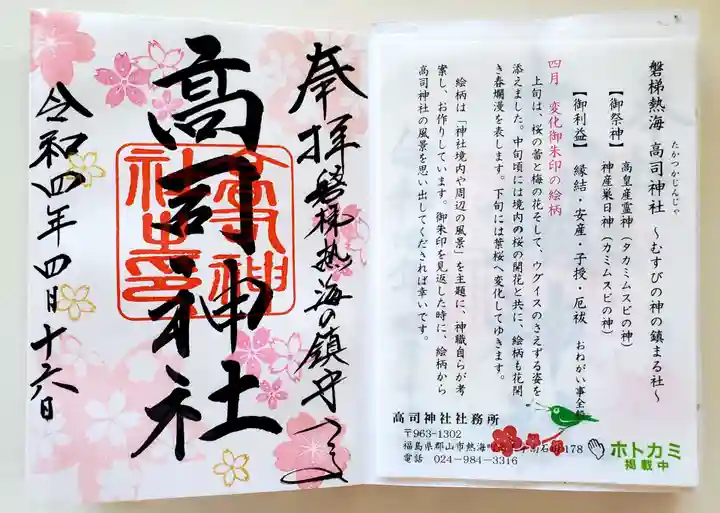 奉拝 磐梯熱海の鎮守
高司神社
令和四年四月十六日
磐梯熱海 高司神社 ～むすびの神の鎮まる社～
たかつかじんじゃ
【御祭神】 高皇産霊神(タカミムスビの神)
神産巣日神(カミムスビの神)
【御利益】 縁結・安産・子授・厄祓 おねがい事全般
四月 変化御朱印の絵柄
上旬は、桜の蕾と梅の花そして、ウグイスのさえずる姿を
添えました。中旬頃には境内の桜の開花と共に、絵柄も花開
き春爛漫を表します。下旬には葉桜へ変化してゆきます。
絵柄は「神社境内や周辺の風景」を主題に、神職自らが考
案し、お作りしています。御朱印を見返した時に、絵柄から
高司神社の風景を思い出してくだされば幸いです。
高司神社社務所
〒963-1302
福島県郡山市熱海町 178
電話 024-984-3316
ホトカミ
掲載中